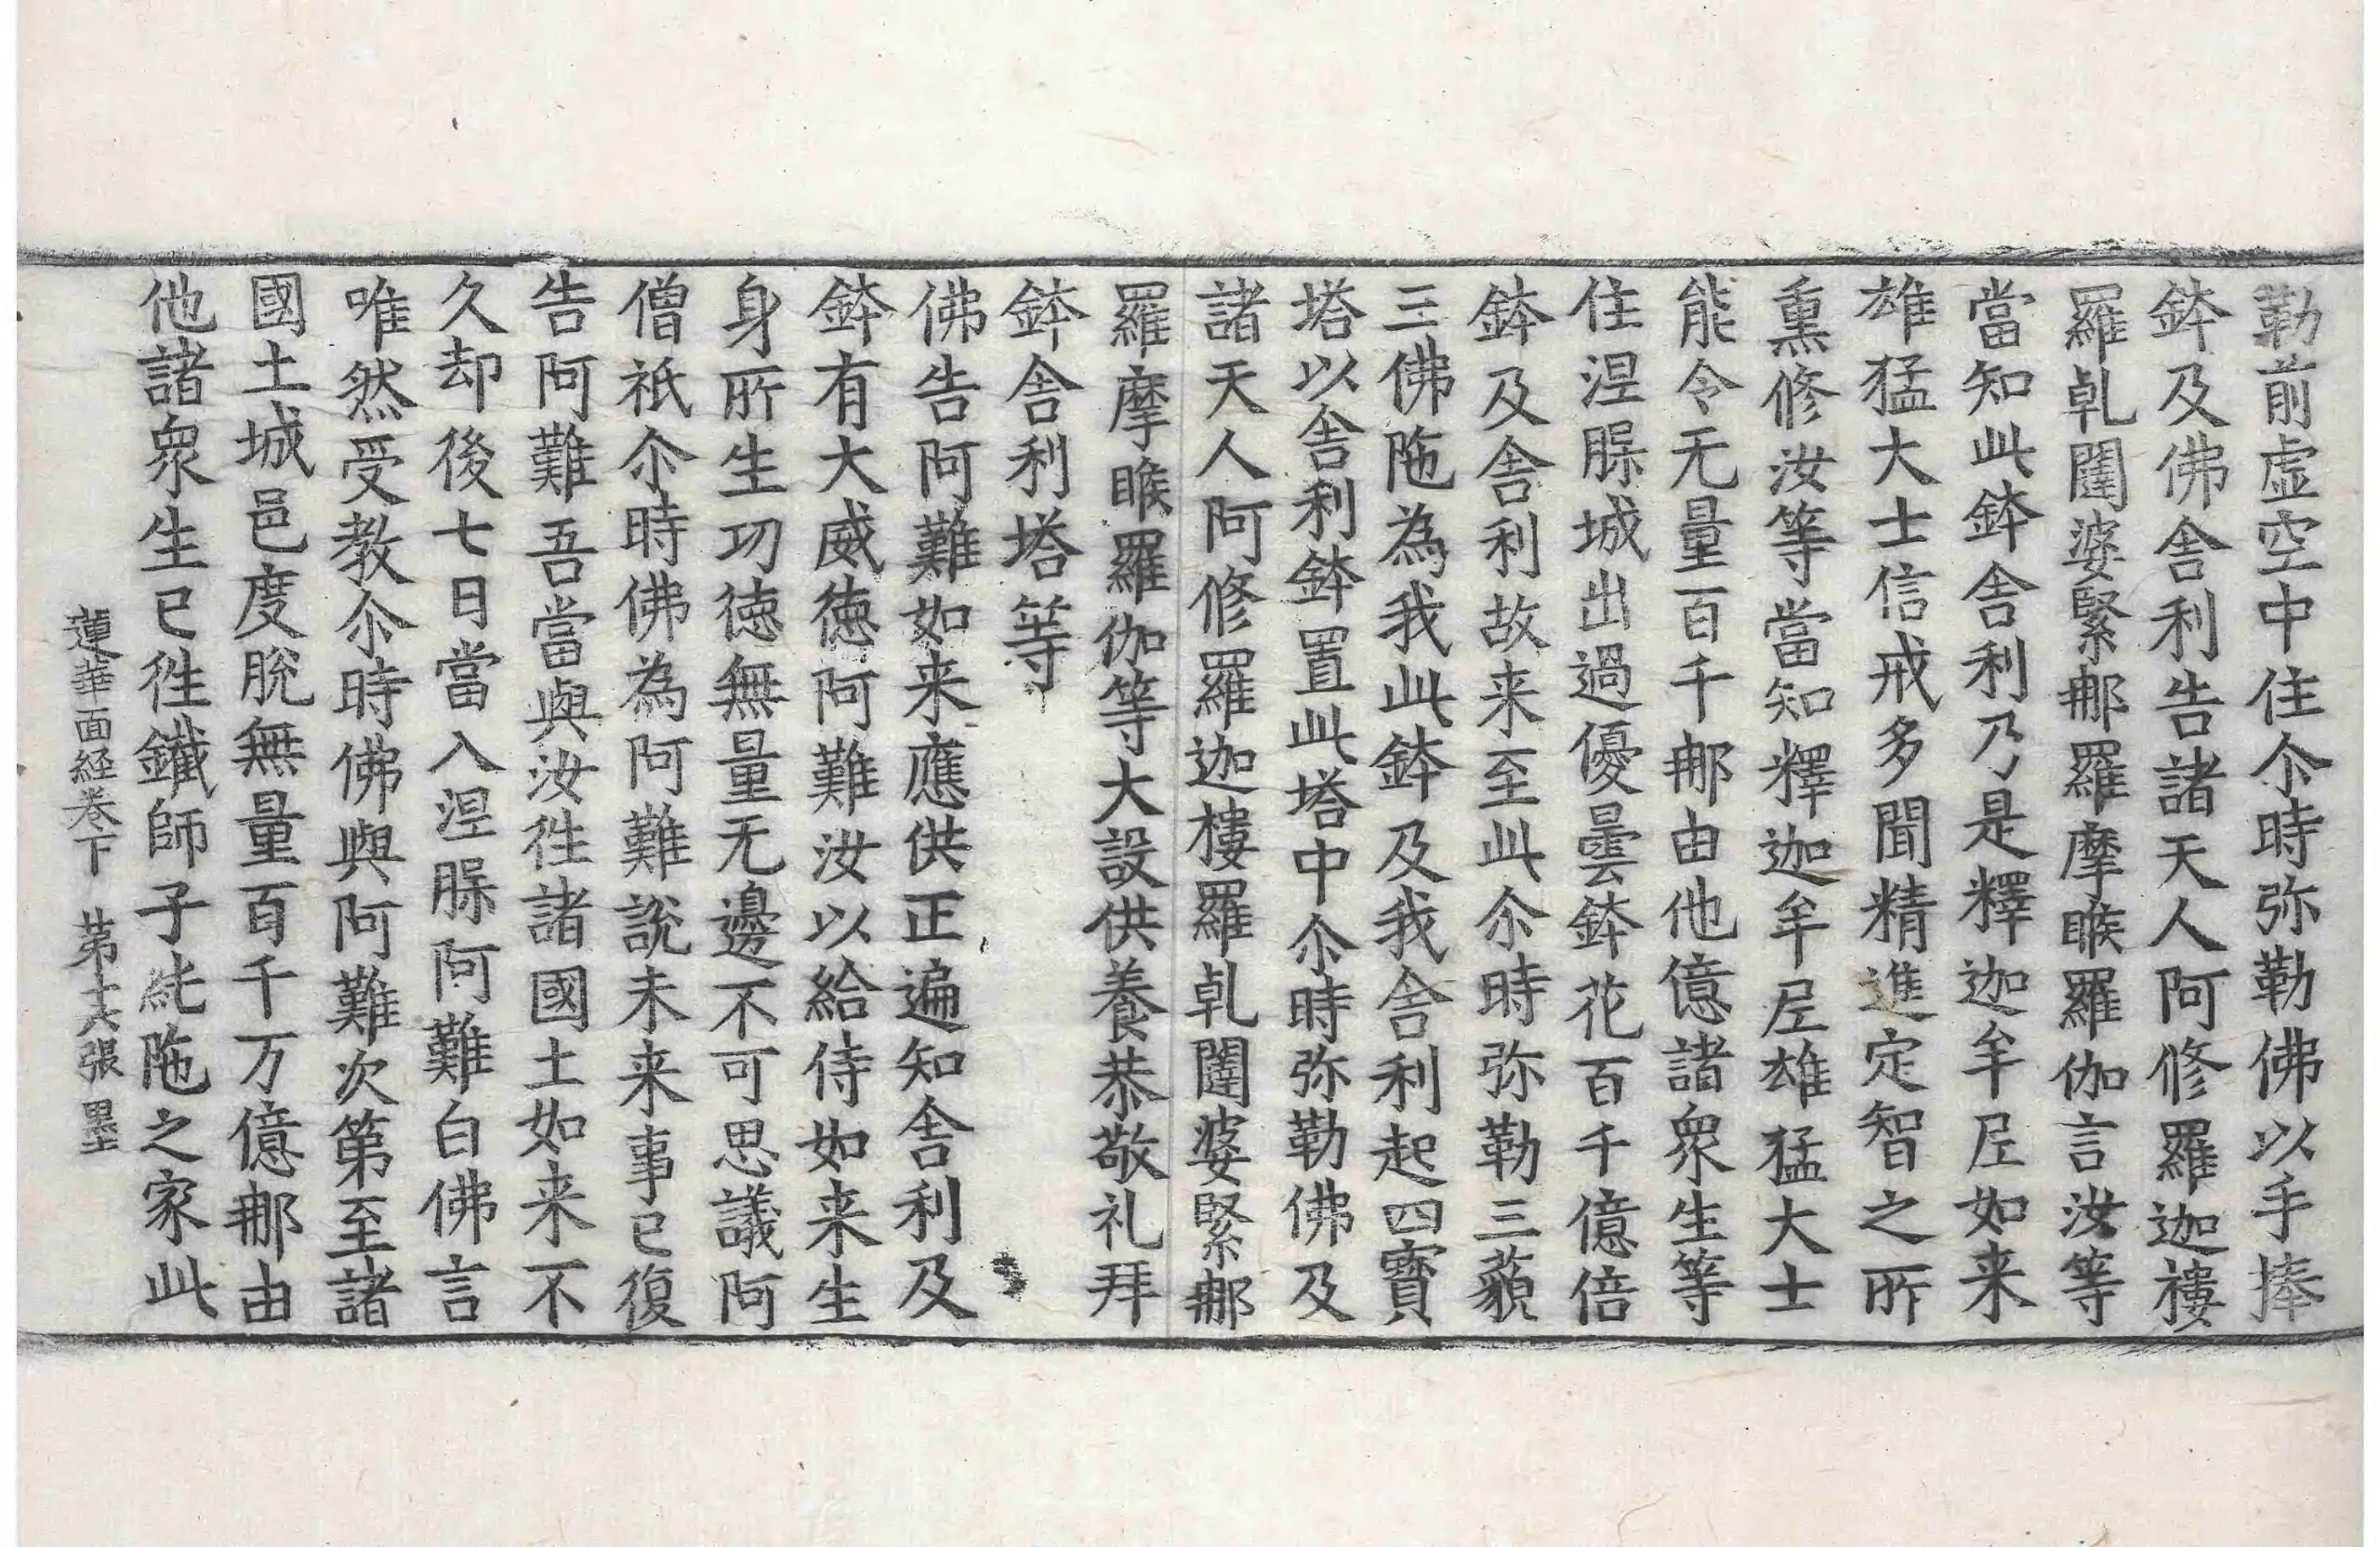 勒前虛空中住尒時弥勒佛以手捧
鉢及佛舎利告諸天人阿修羅迦樓
羅乹闥婆緊郍羅摩睺羅伽言汝等
當知此鉢舎利乃是釋迦牟尼如来
雄猛大士信戒多聞精進定智之所
熏修汝等當知釋迦牟尼雄猛大士
能令无量百千郍由他億諸衆生等
住涅槃城出過優曇鉢花百千億倍
鉢及舎利故来至此尒時弥勒三藐
三佛陁為我此鉢及我舎利起四寳
塔以舎利鉢置此塔中尒時弥勒佛及
諸天人阿修羅迦樓羅乹闥婆緊郍
羅摩睺羅伽等大設供養恭敬礼拜
鉢舎利塔等
佛告阿難如来應供正遍知舎利及
鉢有大威徳阿難汝以給侍如来生
身所生功徳無量无邊不可思議阿
僧祇尒時佛為阿難說未来事已復
告阿難吾當與汝徃諸國土如来不
久却後七日當入涅槃阿難白佛言
唯然受教尒時佛與阿難次第至諸
國土城邑度脫無量百千万億郍由
他諸衆生已徃鐵師子紪陁之家此
蓮華面経卷下　苐十六張　墨